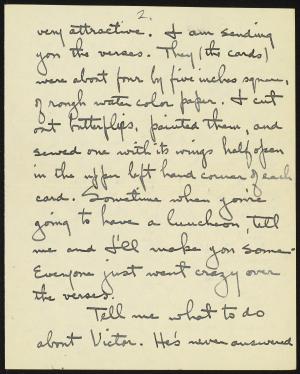 2.
very attractive. I am sending
you the verses. They (the cards)
were about four by five inches square,
of rough water color paper. I cut
out butterflies, painted them, and
sewed one with its wings half open
in the upper left hand corner of each
card. Sometime when you're
going to have a luncheon, tell
me and I'll make you some.
Everyone just went crazy over
the verses.
Tell me what to do
about Victor. He's never answered